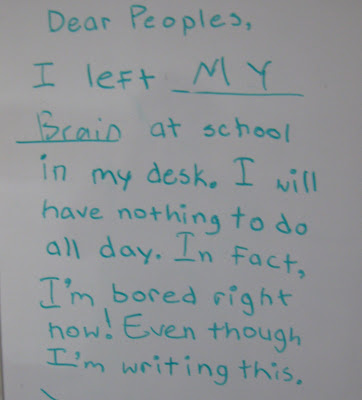 Dear Peoples,
I left MY
Brain at school
in my desk. I will
have nothing to do
all day. In fact,
I'm bored right
now! Even though
I'm writing this.